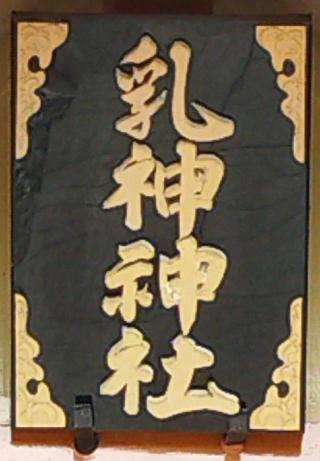 乳神神社